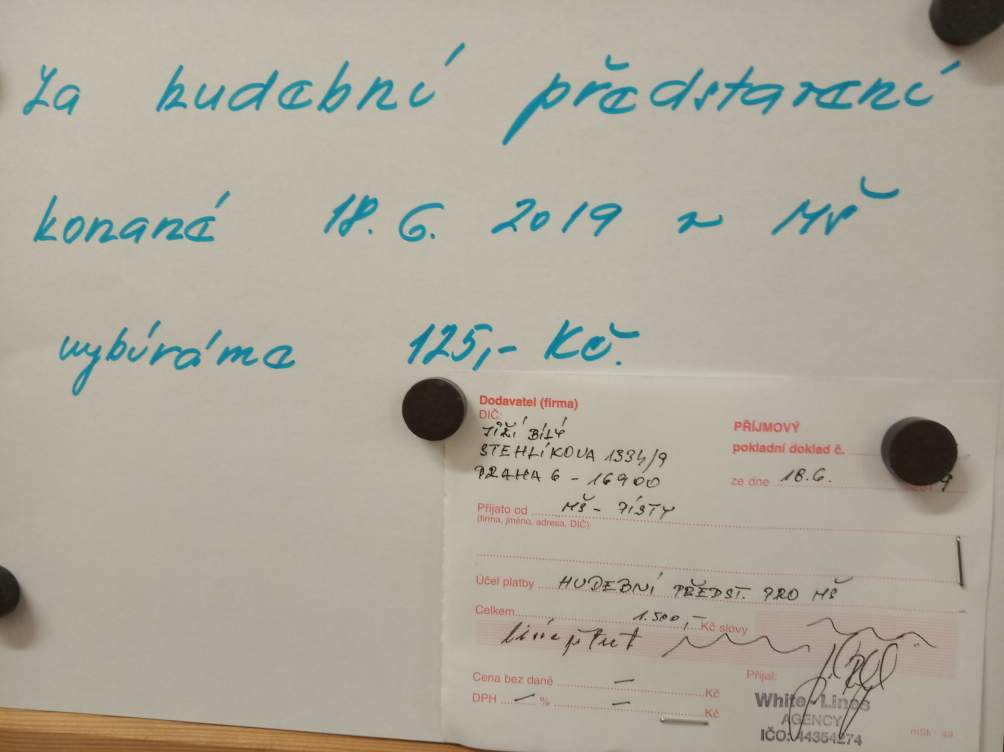 Za hudební představení
konané 18. 6. 2019 v MŠ
vybíráme 125,- Kč.
Dodavatel (firma)
DIČ:
JIŘÍ BÍLÝ
STEHLÍKOVA 1334/9
PRAHA 6 - 16900
PŘÍJMOVÝ
pokladní doklad č.
ze dne 18.6. 9
Přijato od MŠ - PÍSTY
(firma, jméno, adresa, DIČ)
Účel platby HUDEBNÍ PŘEDST. PRO MŠ
Celkem 1.500,- Kč slovy
Cena bez daně — Kč
DPH — % — Kč
Přijal:
White-Lines
AGENCY
IČO: 44354274